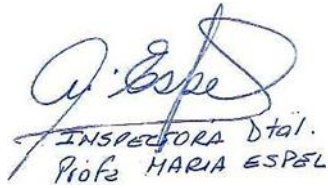 a. Espel
INSPECTORA Dtal.
Profa MARIA ESPEL